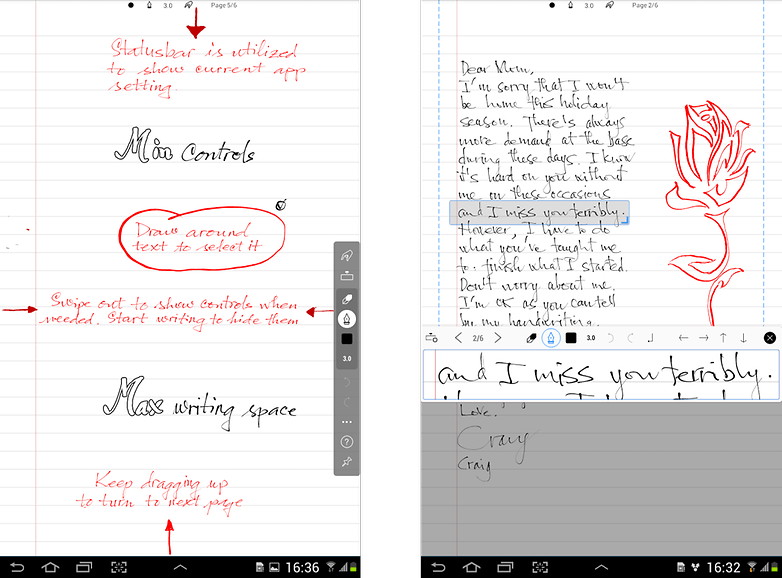 3.0
Page 5/6
Statusbar is utilized
to show current app
setting.
Min Controls
Draw around
text to select it
Swipe out to show controls when
needed. Start writing to hide them
3.0
Max writing space
Keep dragging up
to turn to next page
16:36
3.0
Page 2/6
Dear Mom,
I'm sorry that I won't
be home this holiday
season. There's always
more demand at the base
during these days. I know
it's hard on you without
me on these occasions
and I miss you terribly.
However, I have to do
what you've taught me
to: finish what I started.
Don't worry about me.
I'm OK as you can tell
by my handwriting.
2/6
3.0
and I miss you terribly.
Love.
Craig
Craig
16:32